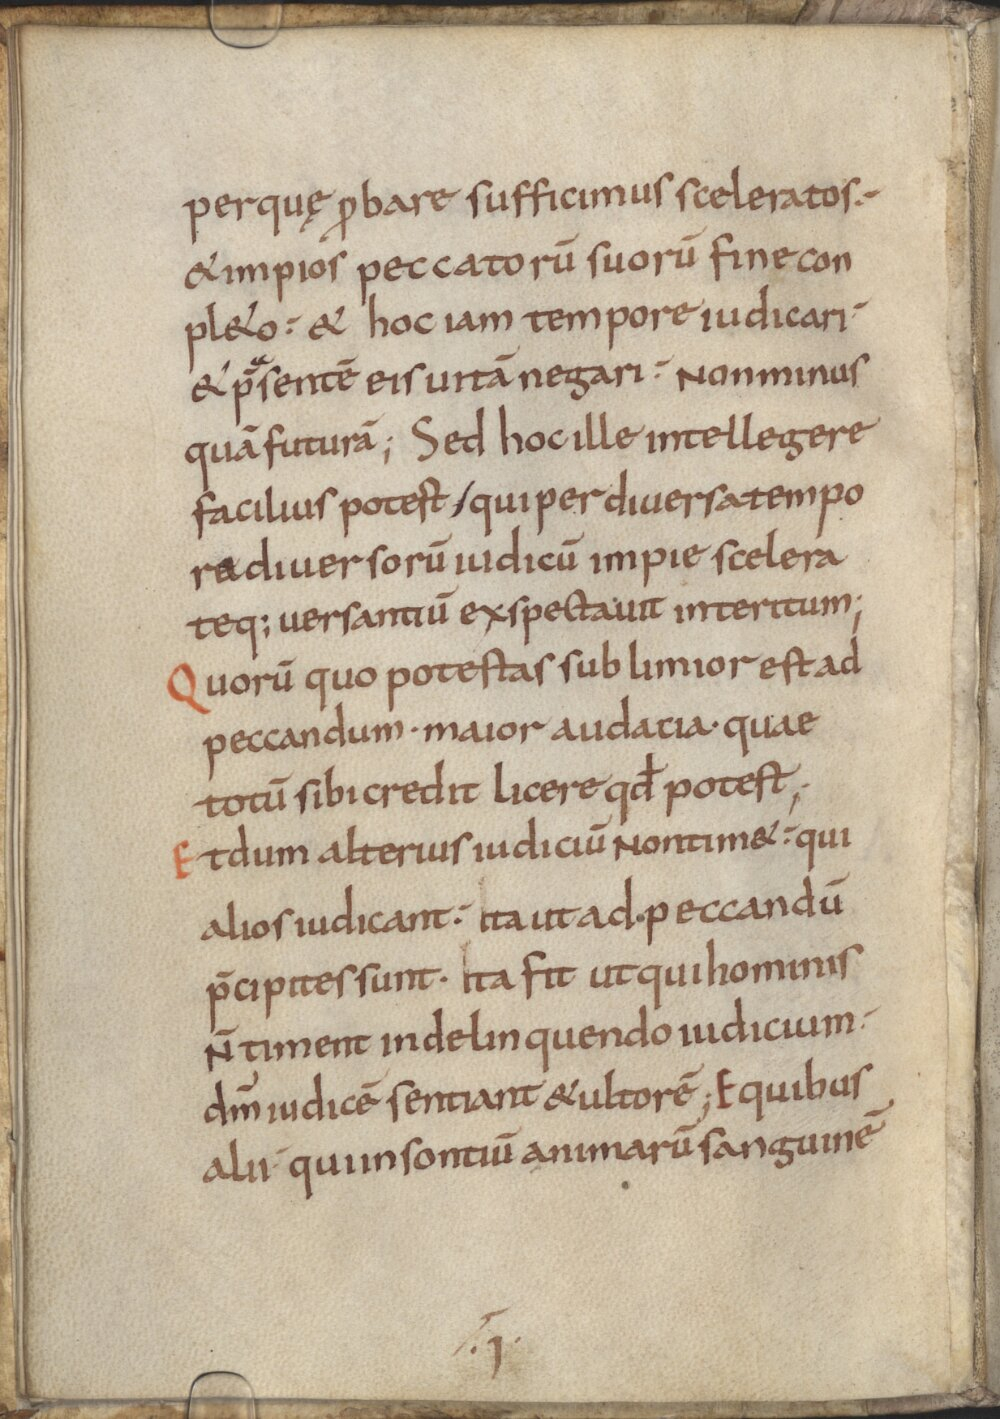 perquę ꝓbare sufficimus sceleratos.-
& impios peccatorū suorū fine con
pl&o:- & hoc iam tempore iudicari:-
& p̄ͣsentē eis uitā negari:- Non minus
quā futurā; Sed hoc ille intellegere
facilius potest / qui per diuersa tempo
ra diuersorū iudicū impie scelera
teq; uersantiū exspectauit interitum;
Quorū quo potestas sublimior est ad
peccandum · maior audatia · quae
totū sibi credit licere qđ potest;
Et dum alterius iudiciū Non tim&:- qui
alios iudicant:- ita ut ad peccandū
p̄cipites sunt · ita fit ut qui hominis
N̄ timent in delinquendo iudicium:-
dm̄ iudicē sentiant & ultorē; E quibus
alii qui insontiū animarū sanguinē
.I.